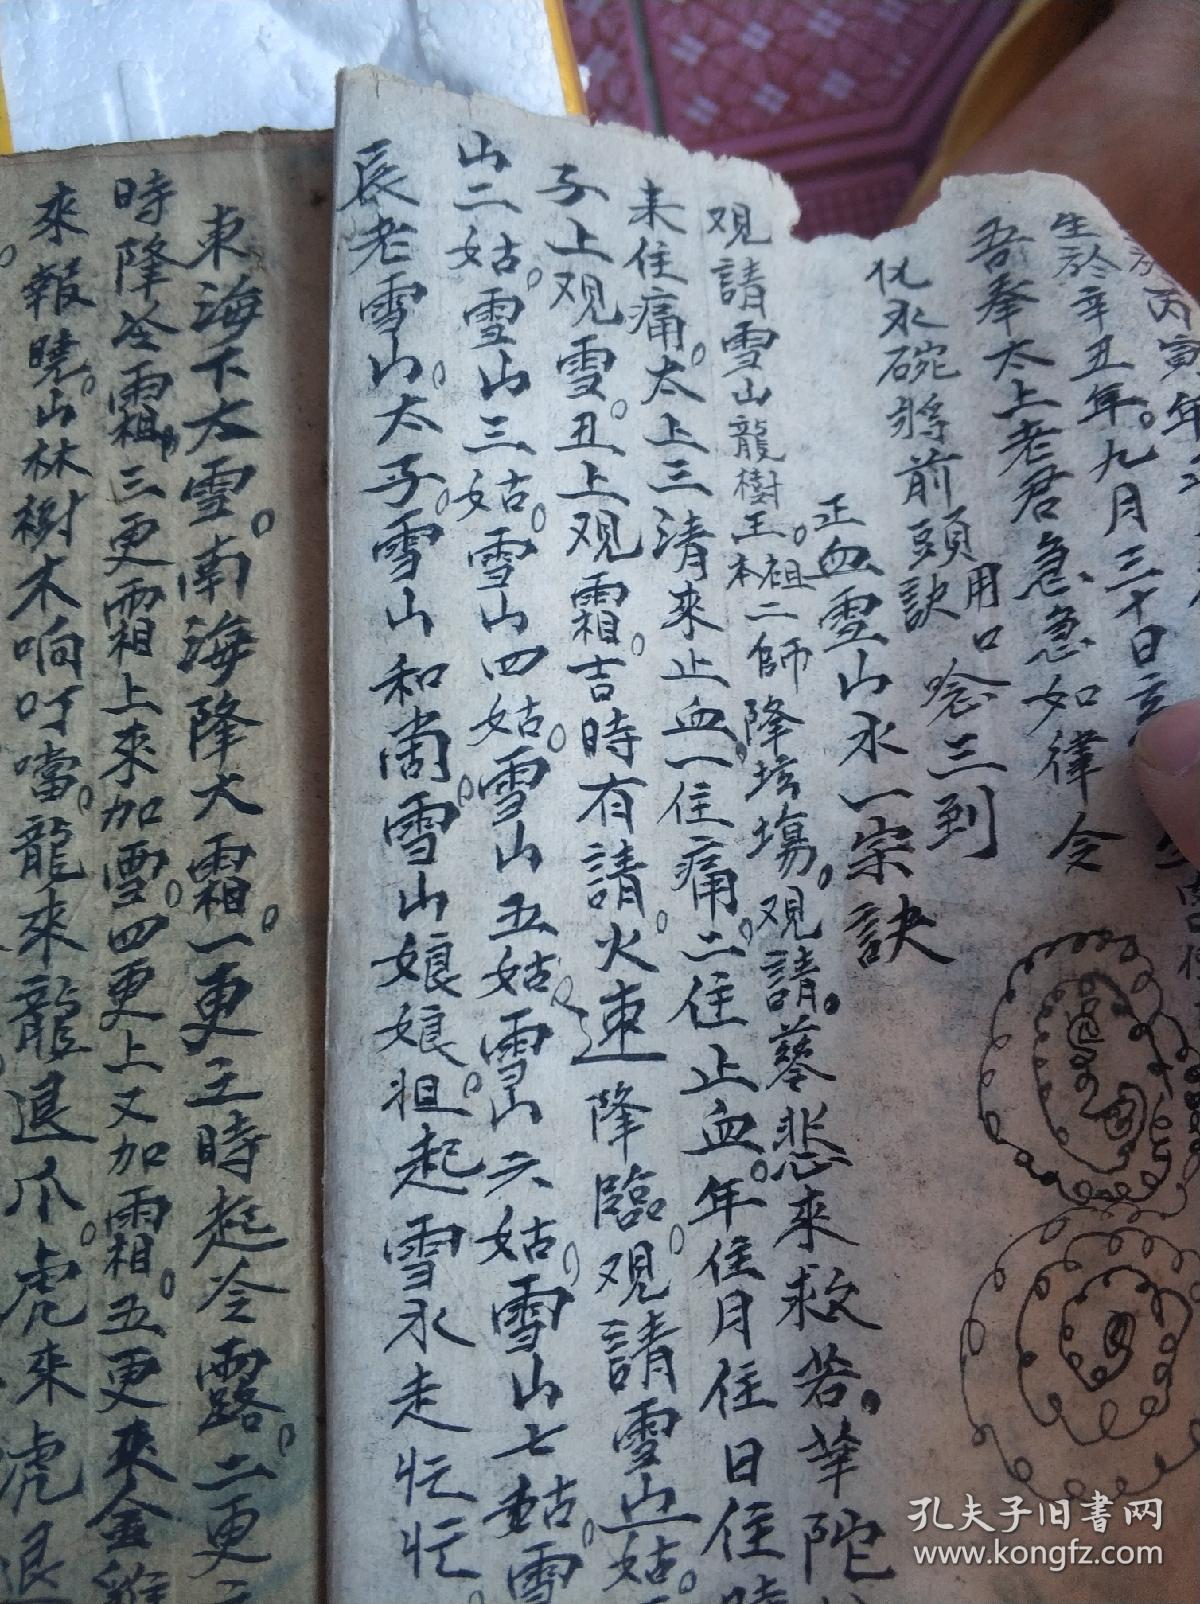 丙寅年
生於辛丑年。九月三十日
吾奉太上老君急急如律令
化水碗將前頭訣
用口唸三到
正血雪山水一宗訣
观請雪山龍樹王。祖本二師降壇塲。观請。蔘悲來救苦。華陀
来住痛。太上三清來止血。一住痛。二住止血。年住月住日住時
子上观雪。丑上观霜。吉時有請。火速降臨。观請雪山姑。雪
山二姑。雪山三姑。雪山四姑。雪山五姑。雪山六姑。雪山七姑。雪
長老雪山。太子雪山和尚。雪山娘娘。担起雪水走忙忙。
東海下大雪。南海降大霜。一更三時起冷露。二更三
時降冷霜。三更霜上來加雪。四更上又加霜。五更來金雞
來報曉。山林樹木响叮噹。龍來龍退爪。虎来虎退
孔夫子旧書网
www.kongfz.com